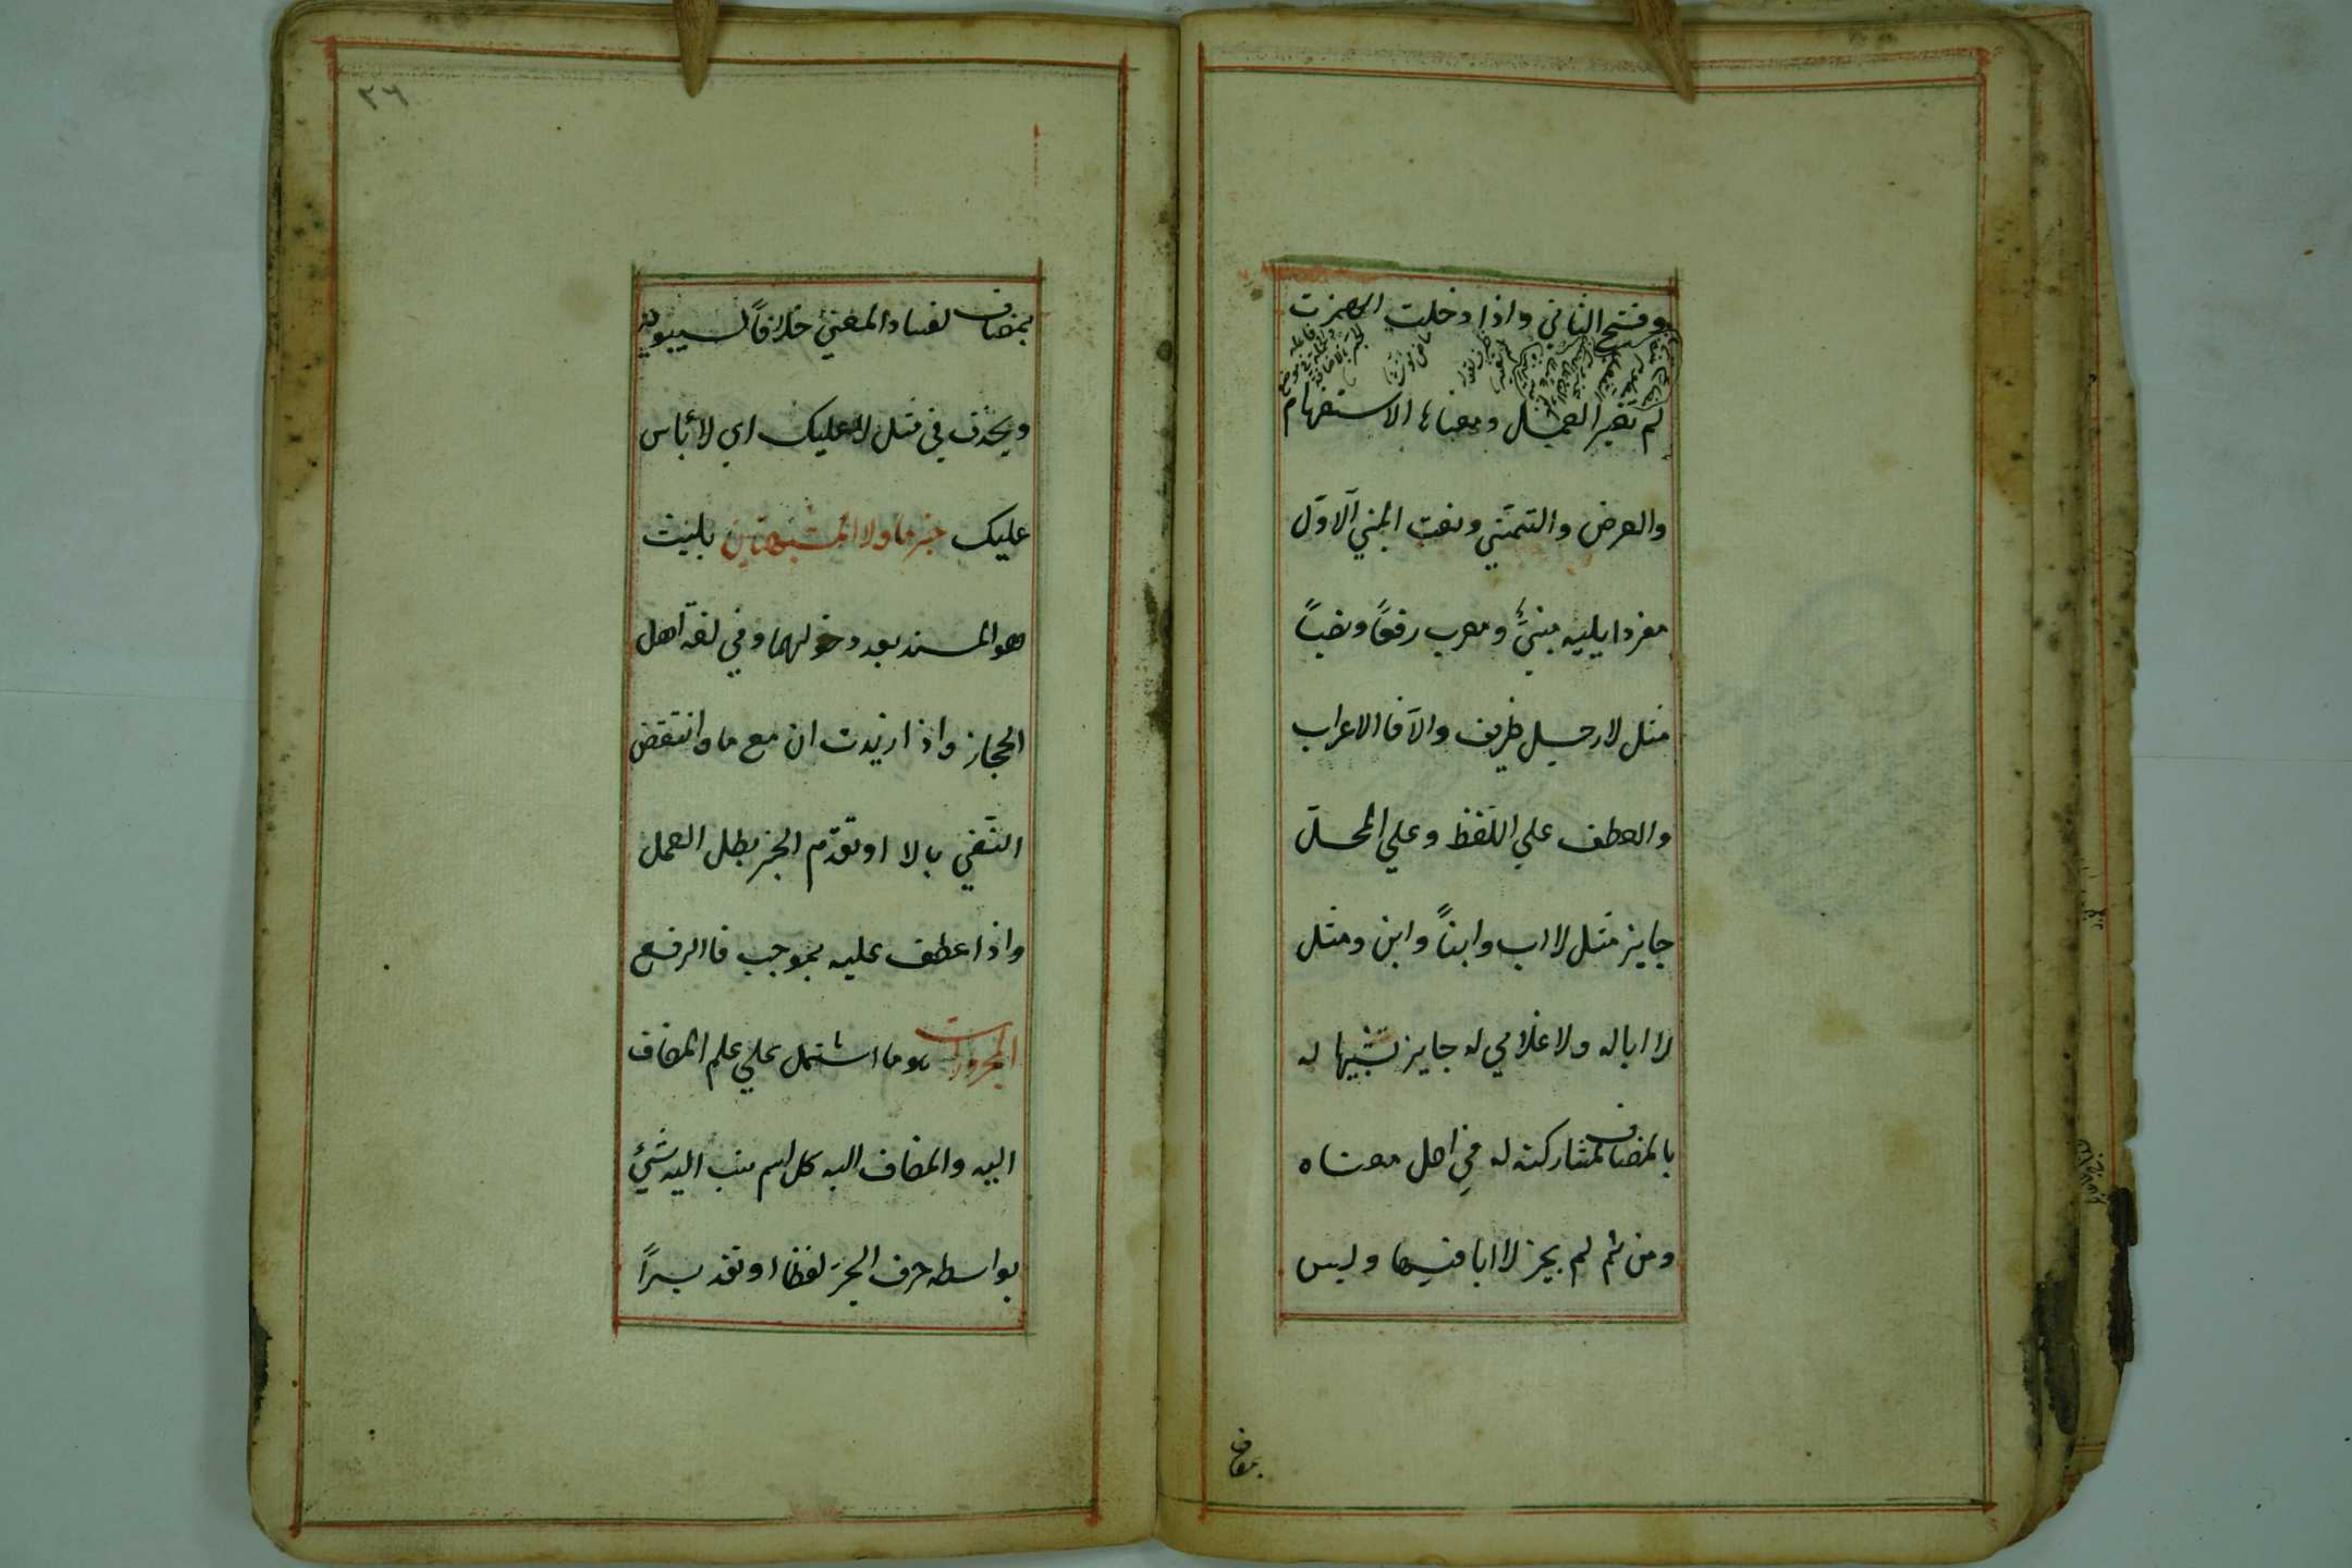 وفتح الثاني واذا دخلت الهمزت
لم تغير العمل ومعناها الاستفهام
والعرض والتمني ونعت المبني الاوّل
مفردا يليه مبنيٌّ ومعرب رفعًا ونصبًا
مثل لا رجل ظريف والا فا الاعراب
والعطف علي اللفظ وعلي المحلّ
جايز مثل لا اب وابنًا وابن ومثل
لا ابا له ولا غلامي له جايز تشبيها له
بالمضاف لمشاركته له في اصل معناه
ومن ثم لم يجز لا ابا فيها وليس
بمضاف
٢٦
بمضاف لفساد المعني خلافًا لسيبويه
ويحذف في مثل لا عليك اي لا بأس
عليك خبر ما ولا المشبهتين بليت
هو المسند بعد دخولهما وفي لغة اهل
الحجاز واذا زيدت ان مع ما وانتقض
النّفي بالا او تقدّم الخبر بطل العمل
واذا عطف عليه بموجب فا الرفع
المجرورات هو ما اشتمل علي علم المضاف
اليه والمضاف اليه كل اسم نسب اليه شيئ
بواسطه حرف الجرّ لفظا او تقديراً